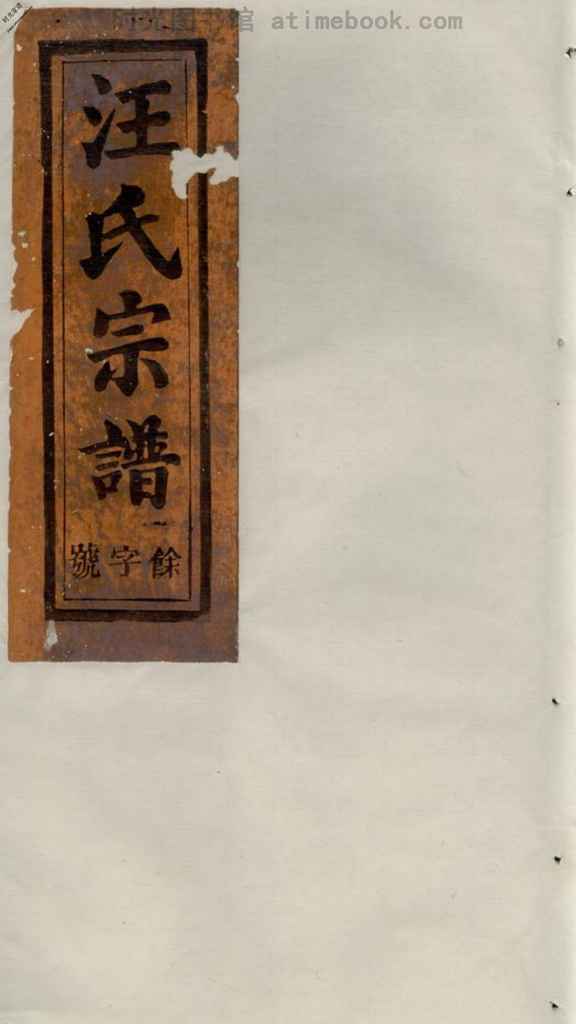 时光图书馆 atimebook.com
汪氏宗譜
餘字號